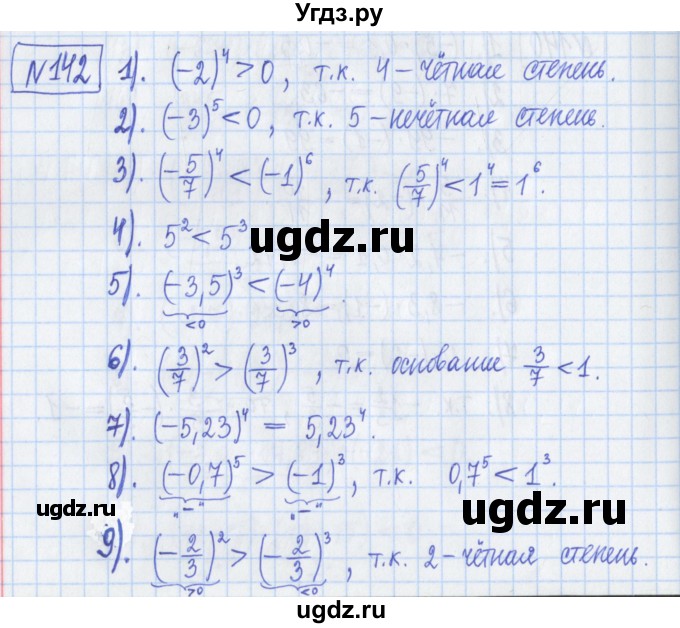 Угдз.ру
№142 1). (−2)⁴ > 0, т.к. 4 – чётная степень.
2). (−3)⁵ < 0, т.к. 5 – нечётная степень.
3). (−5/7)⁴ < (−1)⁶, т.к. (5/7)⁴ < 1⁴ = 1⁶.
4). 5² < 5³
ugdz.ru
5). (−3,5)³ < (−4)⁴.
<0 >0
ugdz.ru
6). (3/7)² > (3/7)³, т.к. основание 3/7 < 1.
7). (−5,23)⁴ = 5,23⁴.
8). (−0,7)⁵ > (−1)³, т.к. 0,7⁵ < 1³.
„−“ „−“
ugdz.ru
ugdz.ru
9). (−2/3)² > (−2/3)³, т.к. 2 – чётная степень.
>0 <0
ugdz.ru